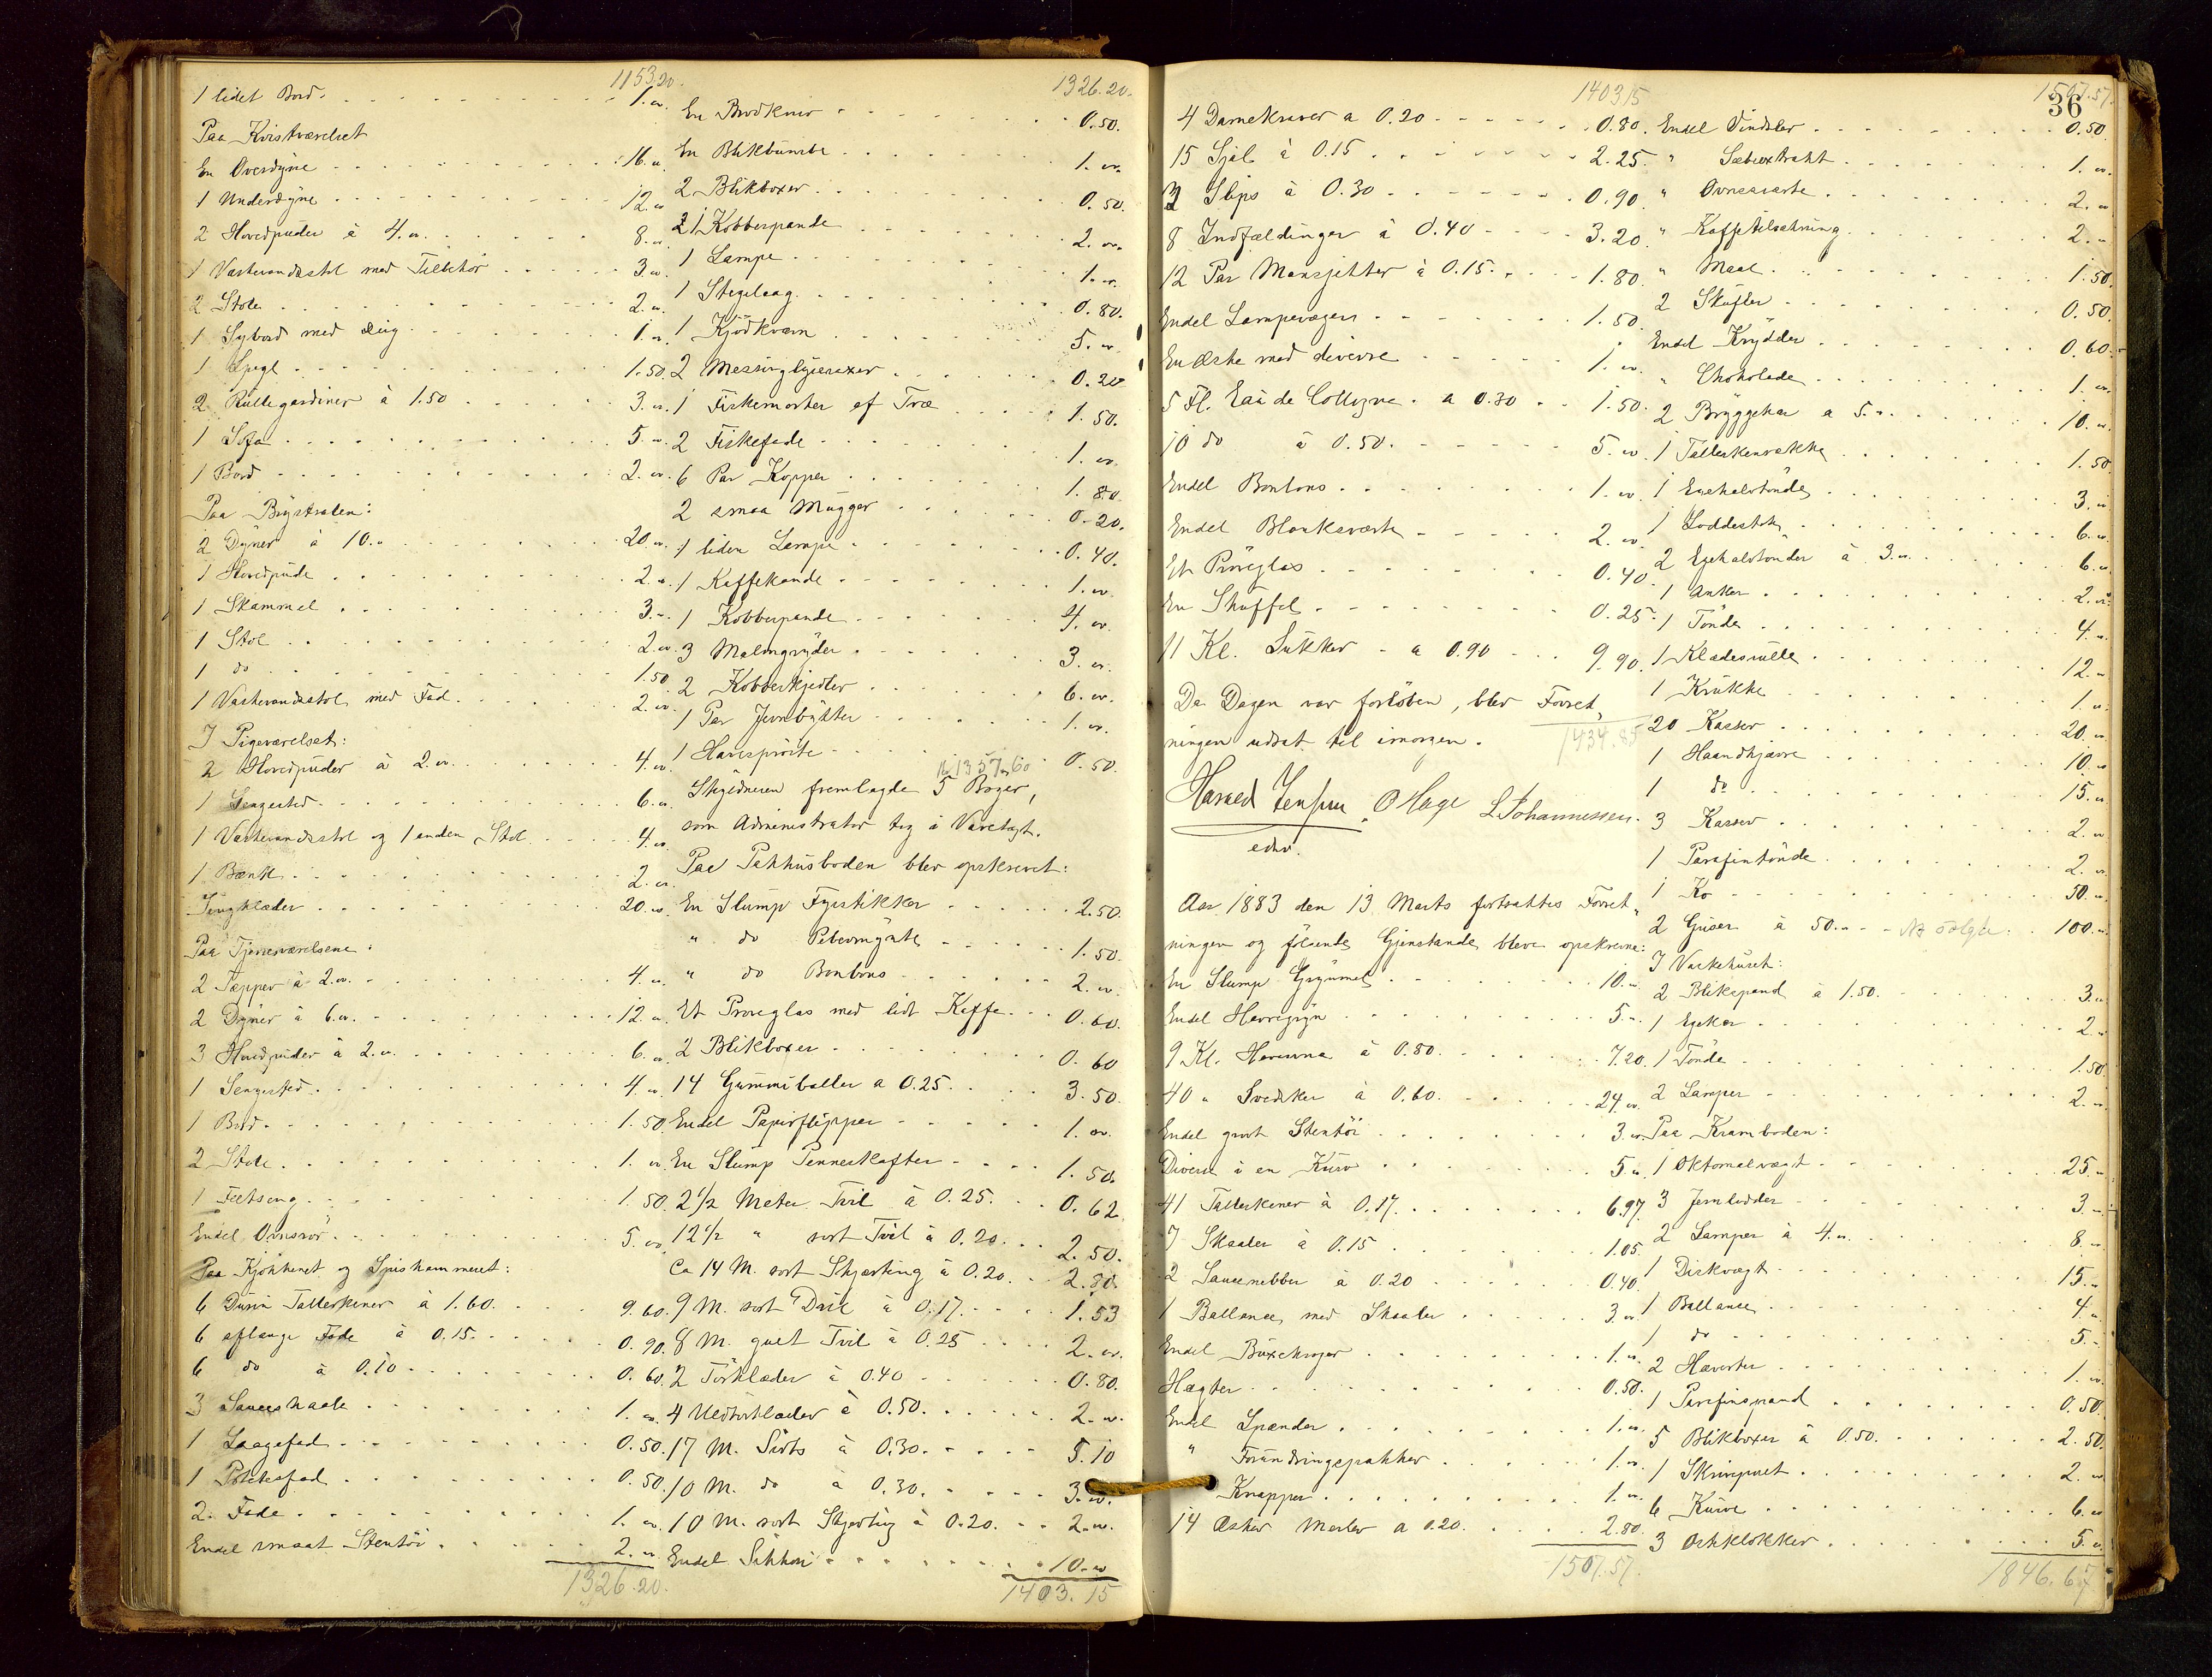 1153.20.
1 lidet Bord. 1. "
Paa Kvistværelset
En Overdyne 16. "
1 Underdyne 12. "
2 Hovedpuder à 4. " 8. "
1 Vaskevandsstol med Tilbehør 3. "
2 Stole 2. "
1 Sybord med 1. "
1 Speil 1.50
2 Rullegardiner à 1.50 3. "
1 Sofa 5. "
1 Bord 2. "
Paa Brystralen:
2 Dyner à 10. " 20. "
1 Hovedpude 2. "
1 Skammel 3. "
1 Stol 2. "
1 do 1.50
1 Vaskevandsstol med Fad 2. "
I Pigeværelset:
2 Hovedpuder à 2. " 4. "
1 Sengested 6. "
1 Vaskevandsstol og 1 anden Stol 4. "
1 Bænk 2. "
Sengklæder 20. "
Paa Tjenerværelsene:
2 Tæpper à 2. " 4. "
2 Dyner à 6. " 12. "
3 Hovedpuder à 2. " 6. "
1 Sengested 4. "
1 Bord 1.50
2 Stole 1. "
1 Feltseng 1.50
Endel Ovnsrör 5. "
Paa Kjökkenet og Spiskammeret:
6 Dusin Tallerkener à 1.60. 9.60.
6 aflange Fade à 0.15. 0.90.
6 do à 0.10 0.60.
3 Sauceskaale 1. "
1 Laagefad 0.50.
1 Potetesfad 0.50.
2 Fade 1. "
Endel smaat Stentöi 2. "
1326.20.
1326.20.
En Brødkniv 0.50.
En Blikbumbe 1. "
2 Blikboxer 0.50.
1 Kobberpande 2. "
1 Lampe 1. "
1 Stegelaag 0.80.
1 Kjödkværn 5. "
2 Messinglysesaxer 0.20
1 Fiskemorter af Træ 1.50.
2 Fiskefade 1. "
6 Par Kopper 1.80.
2 smaa Mugger 0.20.
1 liden Lampe 0.40.
1 Kaffekande 1. "
1 Kobberpande 4. "
3 Malmgryder 3. "
2 Kobberkjedler 6. "
1 Par Jernbötter 1. "
1 Havesprøite 0.50.
1357.60
Skyldneren fremlagde 5 Bøger,
som Administrator tog i Varetægt.
Paa Pakhusboden blev opskrevet:
En Slump Fyrstikker 2.50.
" do Pebermynte 1.50.
" do Bonbons 2. "
Et Prøveglas med lidt Kaffe 0.60.
2 Blikboxer 0.60
14 Gummiballer a 0.25. 3.50.
Endel Papirflipper 1. "
En Slump Penneskafter 1.50.
2 1/2 Meter Tvil à 0.25. 0.62
12 1/2 " sort Tvil à 0.20. 2.50.
Ca 14 M. sort Skjorting à 0.20. 2.80.
9 M. sort Dril à 0.17. 1.53
8 M. guet Tvil à 0.25 2. "
2 Törklæder à 0.40 0.80.
4 Uldtörklæder à 0.50. 2. "
17 M. Sirts à 0.30. 5.10
10 M. do à 0.30. 3. "
10 M. sort Skjorting à 0.20. 2. "
Endel Sikkori 10. "
1403.15
36
1403.15
4 Damekraver a 0.20 0.80.
15 Sjal à 0.15 2.25.
3 Slips à 0.30 0.90.
8 Indfældinger à 0.40 3.20.
12 Par Mansjetter à 0.15. 1.80.
Endel Lampevæger 1.50.
En Æske med diverse 1. "
5 Fl. Eau de Collogne a 0.30 1.50.
10 do à 0.50. 5. "
Endel Bonbons 1. "
Endel Blanksværte 2. "
Et Pröveglas 0.40.
En Skuffel 0.25.
11 Kl. Sukker a 0.90 9.90.
Da Dagen var forløben, blev Forret
ningen udsat til imorgen.
1434.85
Harald Jensen O Hage L Johannessen.
Aar 1883 den 13 Marts fortsattes Forret
ningen og følgende Gjenstande bleve opskrevne:
En Slump Grynmel 10. "
Endel Havregryn 5. "
9 Kl. à 0.80. 7.20.
40 " Svedsker à 0.60. 24. "
Endel grovt Stentöi 3. "
Diverse i en Kurv 5. "
41 Tallerkener à 0.17. 6.97.
7 Skaaler à 0.15 1.05.
2 Saucenebber à 0.20 0.40.
1 Ballance med Skaaler 3. "
Endel Buxekroger 1. "
Hægter 0.50.
Endel Spænder 1. "
" Forundringspakker 1. "
Knapper 1. "
14 Æsker Merler a 0.20. 2.80.
1507.57.
1507.57.
Endel Vindsler 0.50
" Sæbextrakt 1. "
" Ovnsværte 2. "
" Kaffetilsætning 2. "
" Maal 1.50.
2 Skufler 0.50.
Endel Krydder 0.60.
" Chokolade 1. "
2 Bryggekar a 5. " 10. "
1 Tallerkenrække 1.50
1 Egehalvtönde 3. "
1 Loddestok 6. "
2 Egehalvtönder à 3. " 6. "
1 Anker 2. "
1 Tönde 4. "
1 Klædesrulle 12. "
1 Krukke 1. "
20 Kasser 20. "
1 Haandkjærre 10. "
1 do 15. "
3 Kasser 2. "
1 Parafintönde 2. "
1 Ko 50. "
2 Griser à 50. " solgte 100. "
I Vaskehuset:
2 Blikspand à 1.50. 3. "
1 Egekar 2. "
1 Tönde 1.50.
2 Lamper 2. "
Paa Kramboden:
1 Oktomalvægt 25. "
3 Jernlodder 3. "
2 Lamper à 4. " 8. "
1 Diskvægt 15. "
1 Ballance 4. "
1 do 5. "
2 Hæverter 1. "
1 Parafinspand 0.50.
5 Blikboxer à 0.50. 2.50.
1 Skrivpult 2. "
6 Kurve 6. "
3 Ostklokker 5. "
1846.67